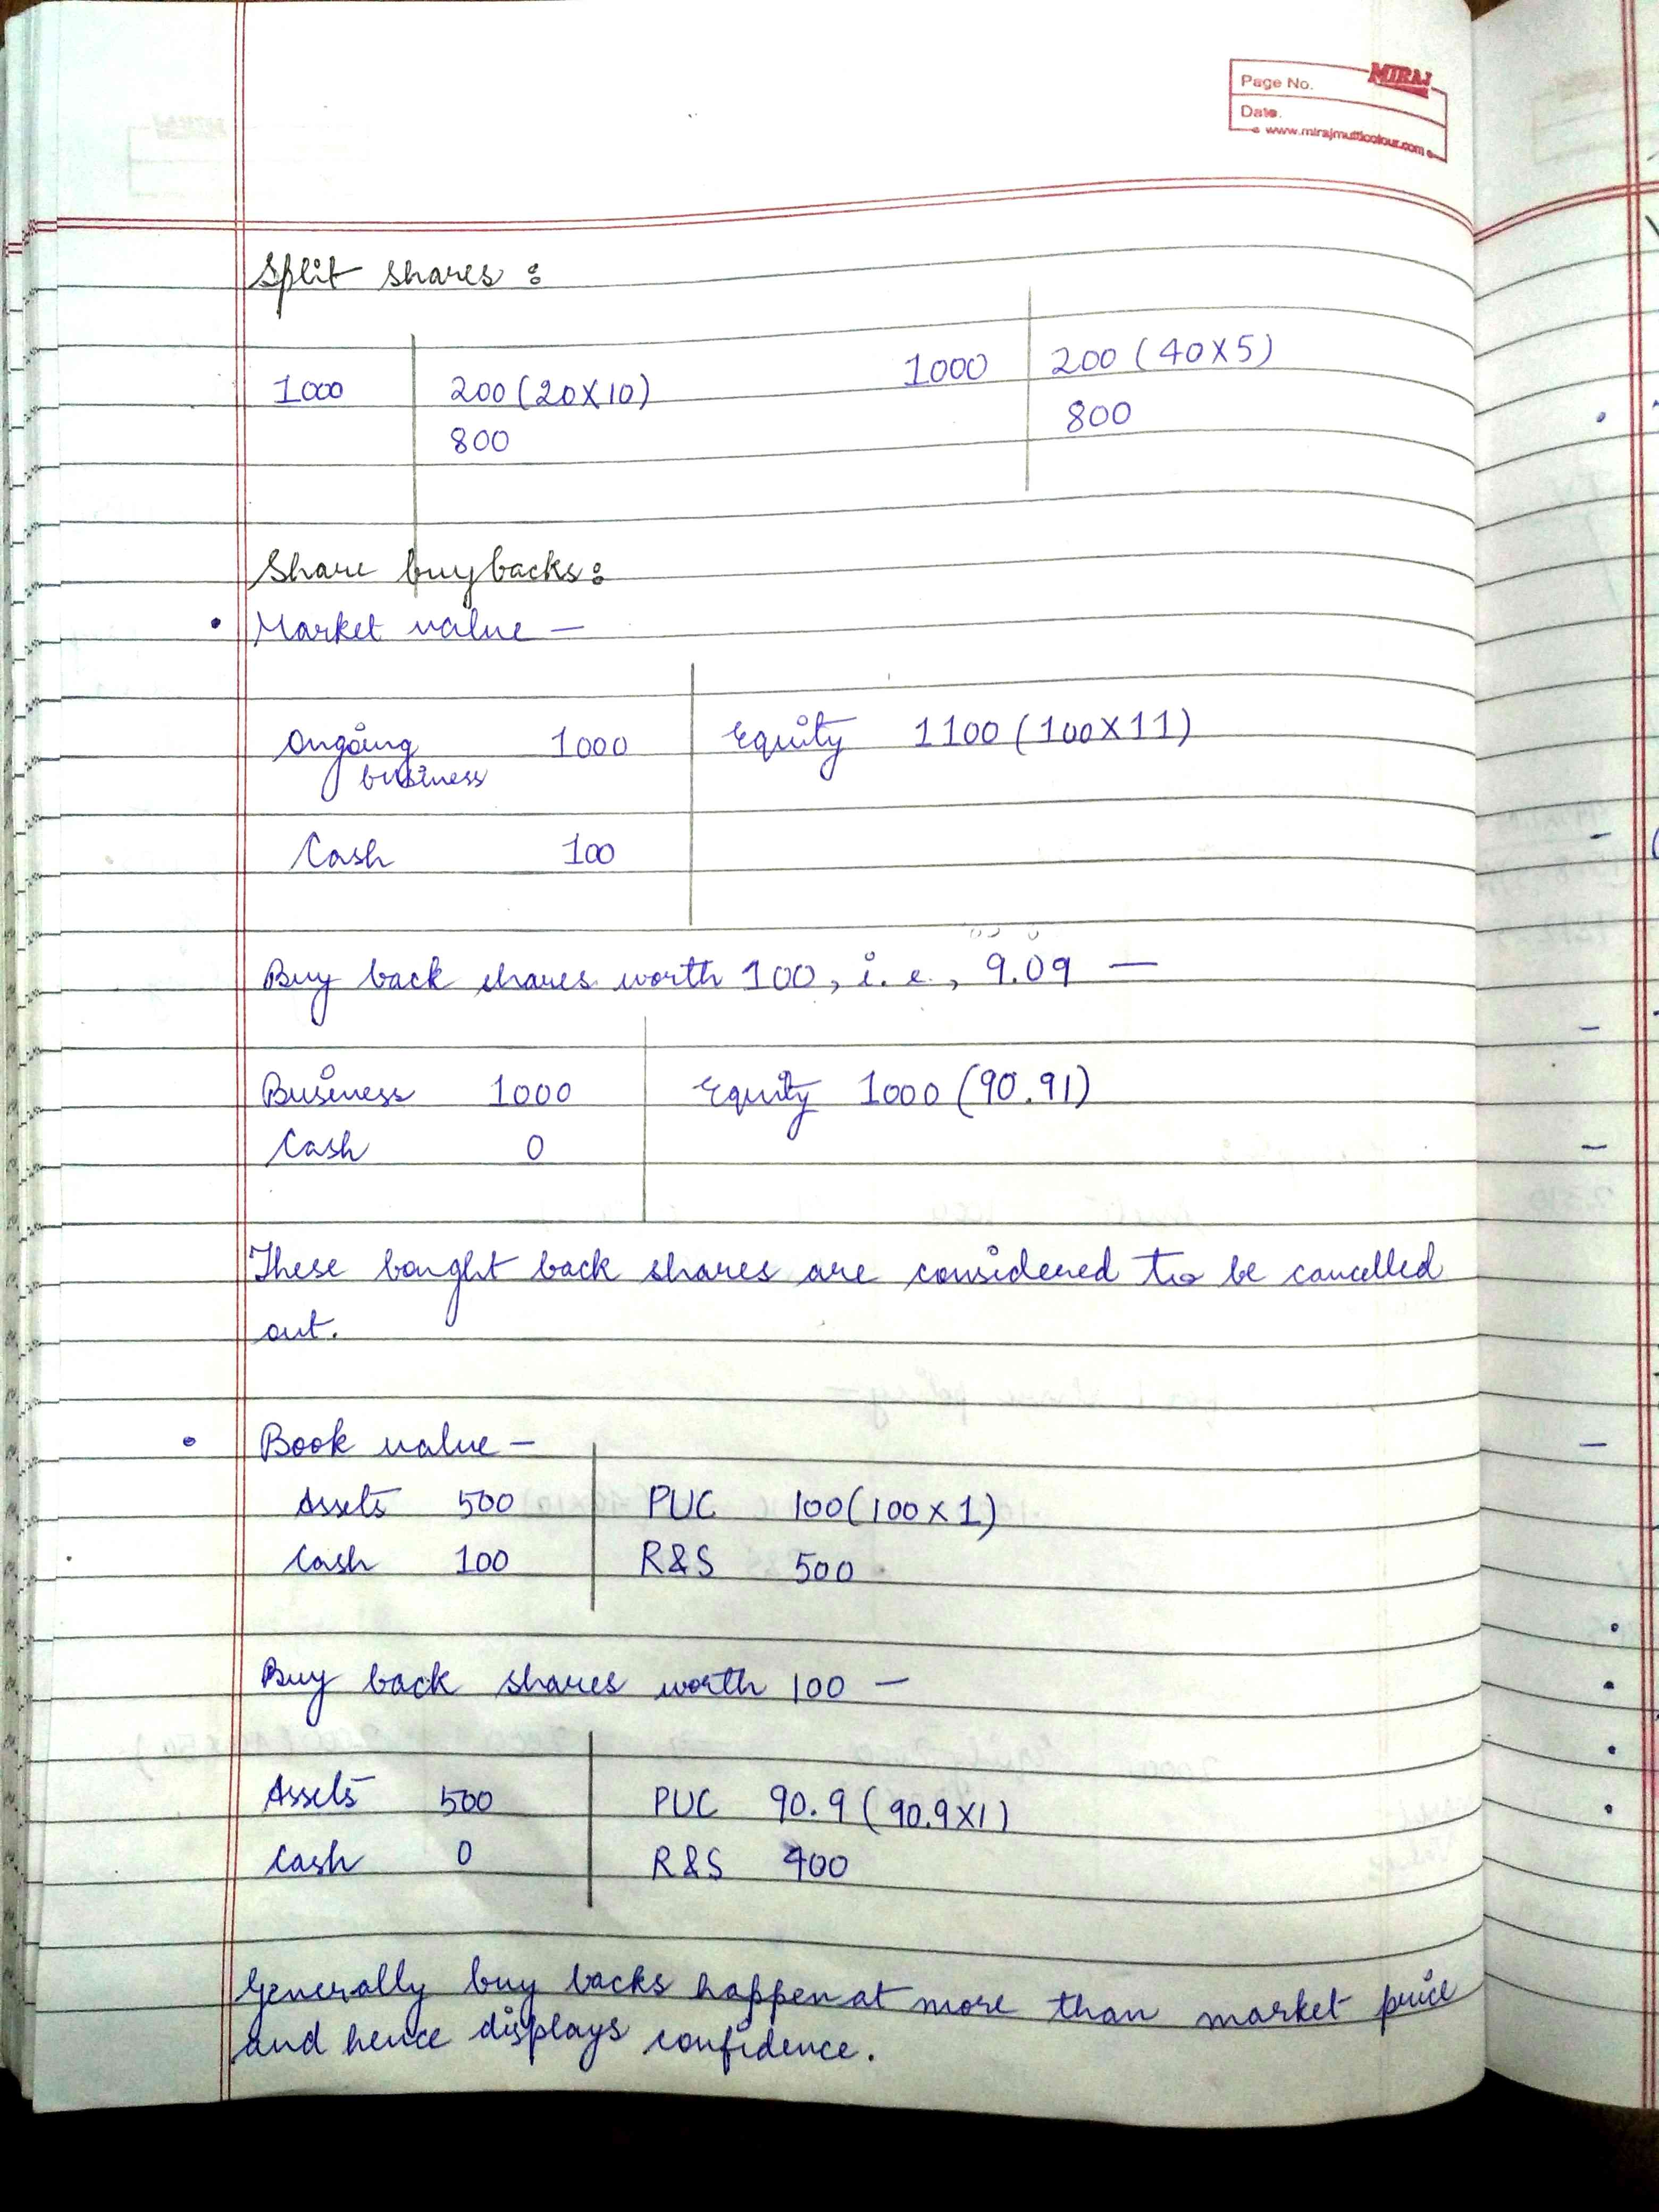 MIRAJ
Page No.
Date.
www.mirajmulticolour.com
Split shares :
1000 200 (20X10) 1000 200 (40X5)
800 800
Share buybacks:
• Market value –
Ongoing 1000 Equity 1100 (100X11)
business
Cash 100
Buy back shares worth 100, i.e., 9.09 –
Business 1000 Equity 1000 (90.91)
Cash 0
These bought back shares are considered to be cancelled
out.
• Book value –
Assets 500 PUC 100 (100 x 1)
Cash 100 R&S 500
Buy back shares worth 100 –
Assets 500 PUC 90.9 (90.9X1)
Cash 0 R&S 400
Generally buy backs happen at more than market price
and hence displays confidence.